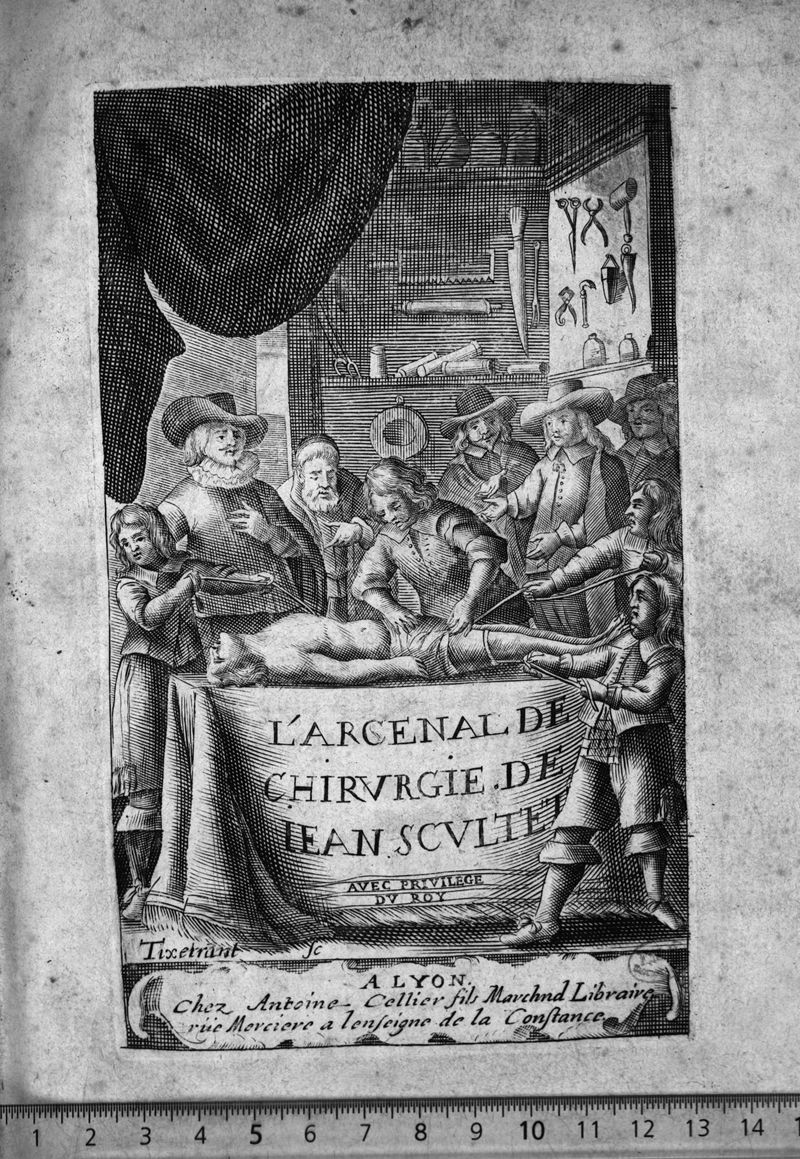 L'ARCENAL DE
CHIRVRGIE.DE
IEAN.SCVLTET
AVEC PRIVILEGE
DV ROY
Tixerant Sc
A LYON.
Chez Antoine Cellier fils Marchnd Libraire
rüe Merciere a lenseigne de la Constance.
1 2 3 4 5 6 7 8 9 10 11 12 13 14